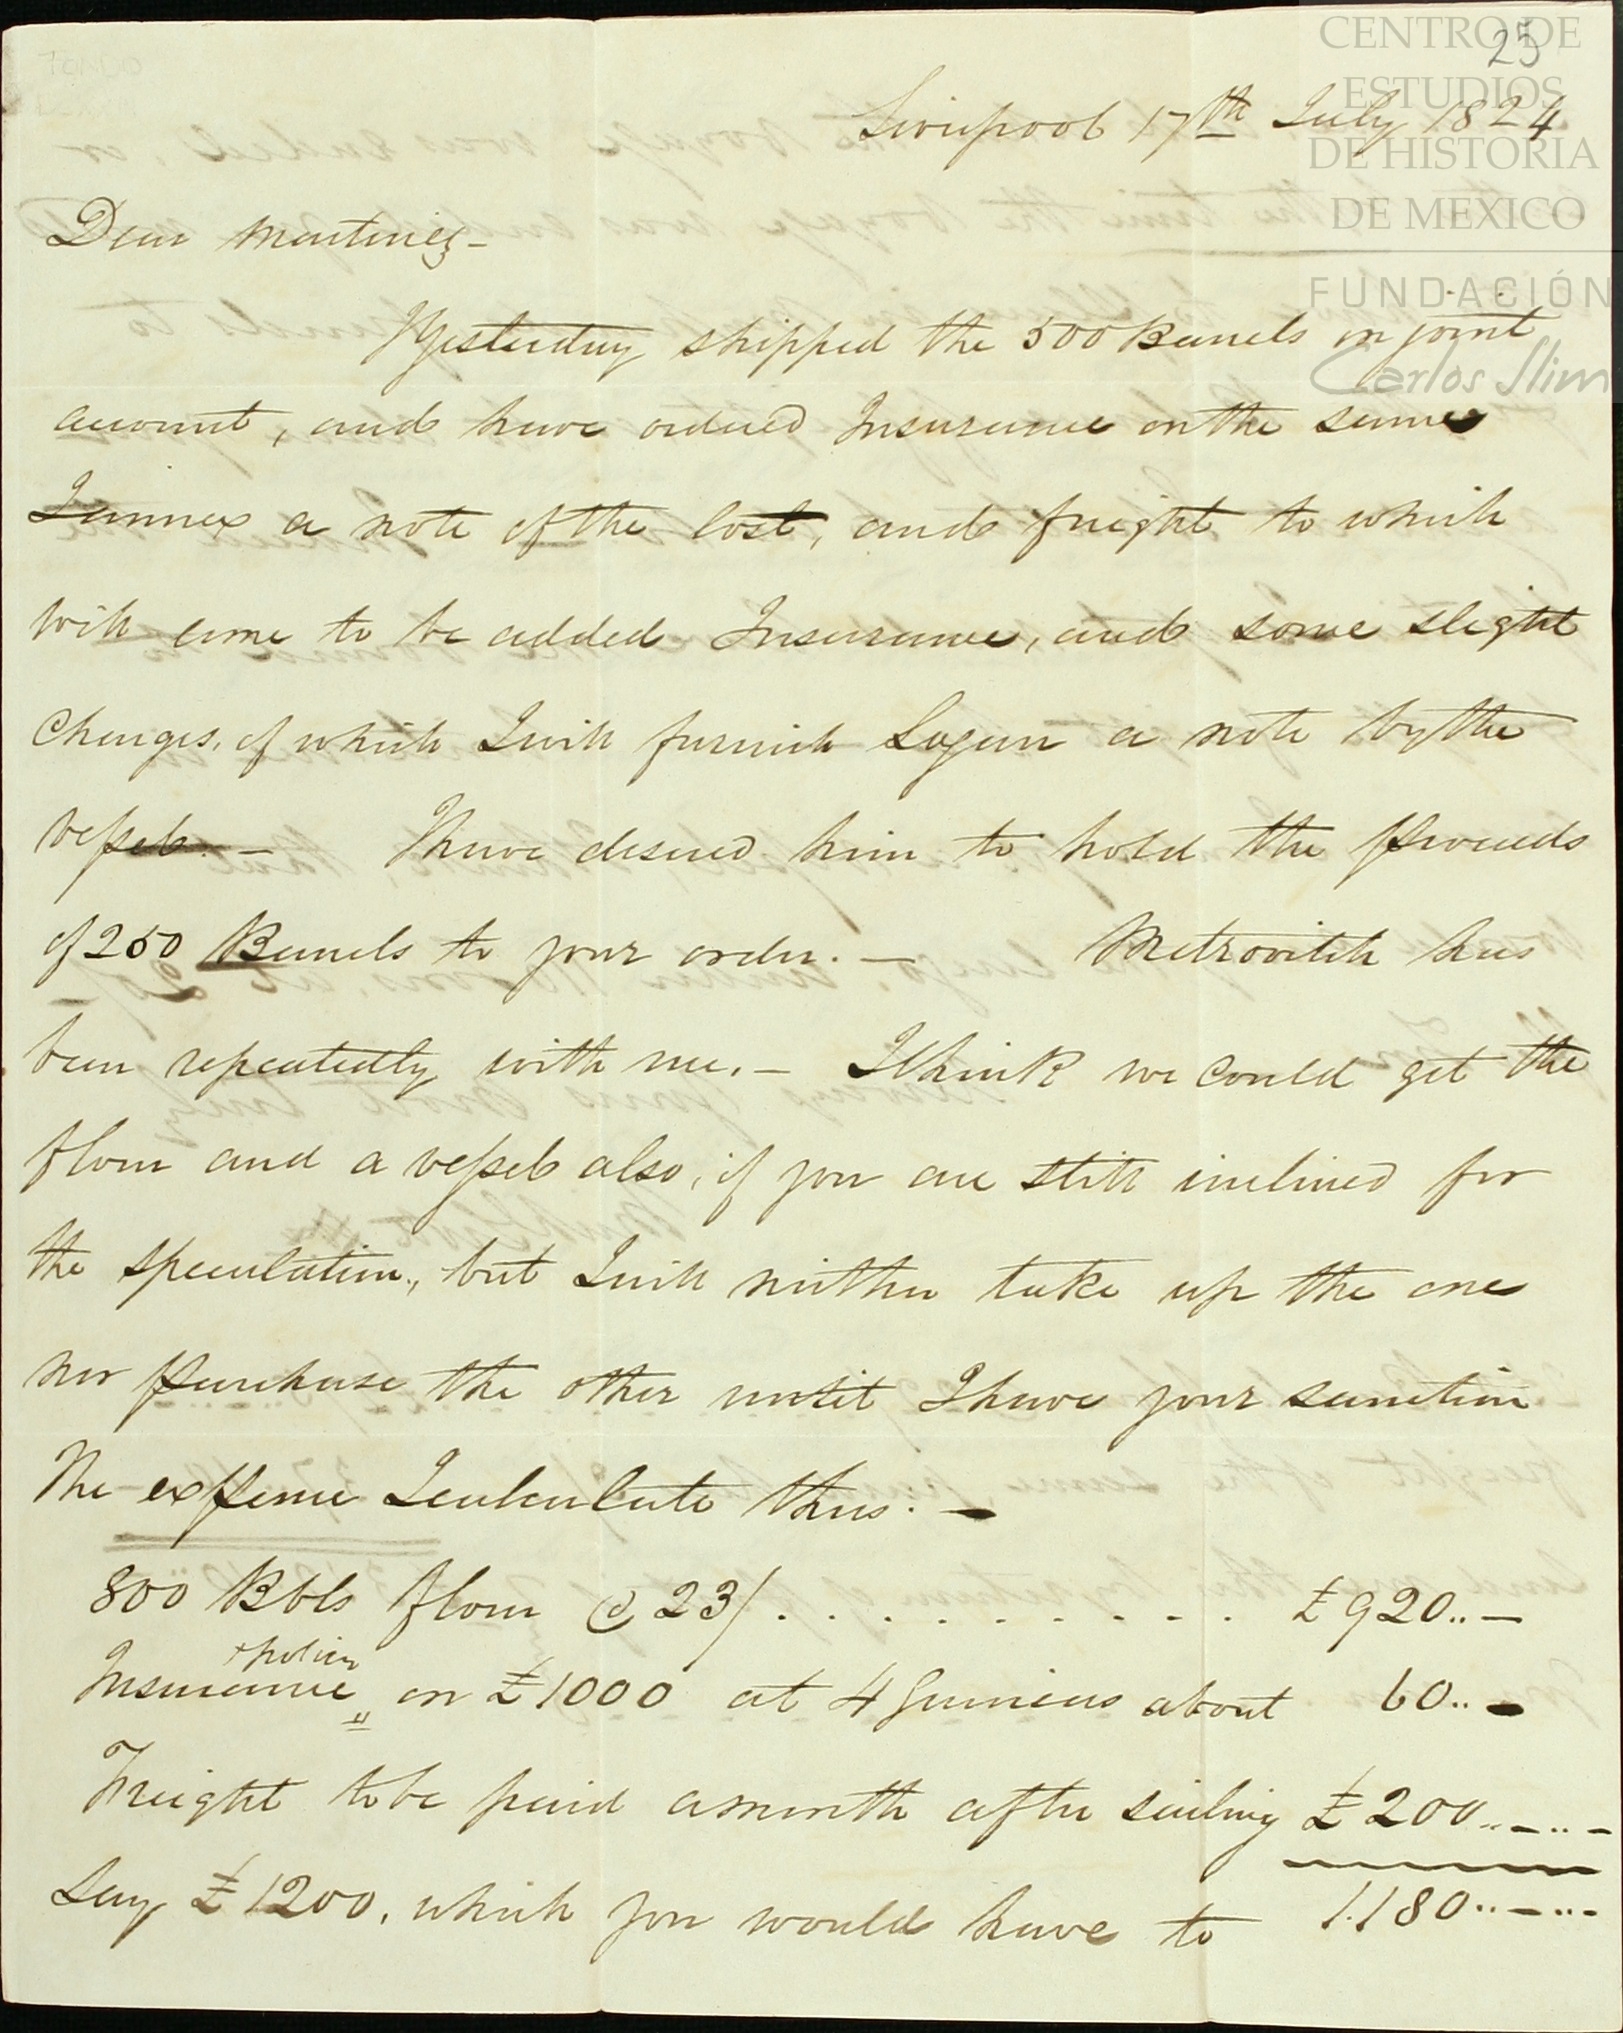 25
CENTRO DE
ESTUDIOS
DE HISTORIA
DE MEXICO
FUNDACIÓN
Carlos Slim
FONDO
Liverpool 17th July 1824
Dear Martinez -
I Yesterday shipped the 500 Barrels on joint
account, and have ordered Insurance on the same
I annex a note of the Cost, and freight to which
will come to be added Insurance, and some slight
Charges, of which I will furnish Logan a note by the
vessel. - I have desired him to hold the proceeds
of 250 Barrels to your order. - Metrovitch has
been repeatedly with me. - I think we could get the
flour and a vessel also, if you are still inclined for
the speculation, but I will neither take up the one
nor purchase the other until I have your sanction
The expense I calculate thus. -
800 Bbls flour @ 23/ . . . . . . . . . . £920..-
Insurance + policy on £1000 at 4 Guineas about 60..-
Freight to be paid a month after sailing £200..-..-
Say £1200, which you would have to 1.180..-..-